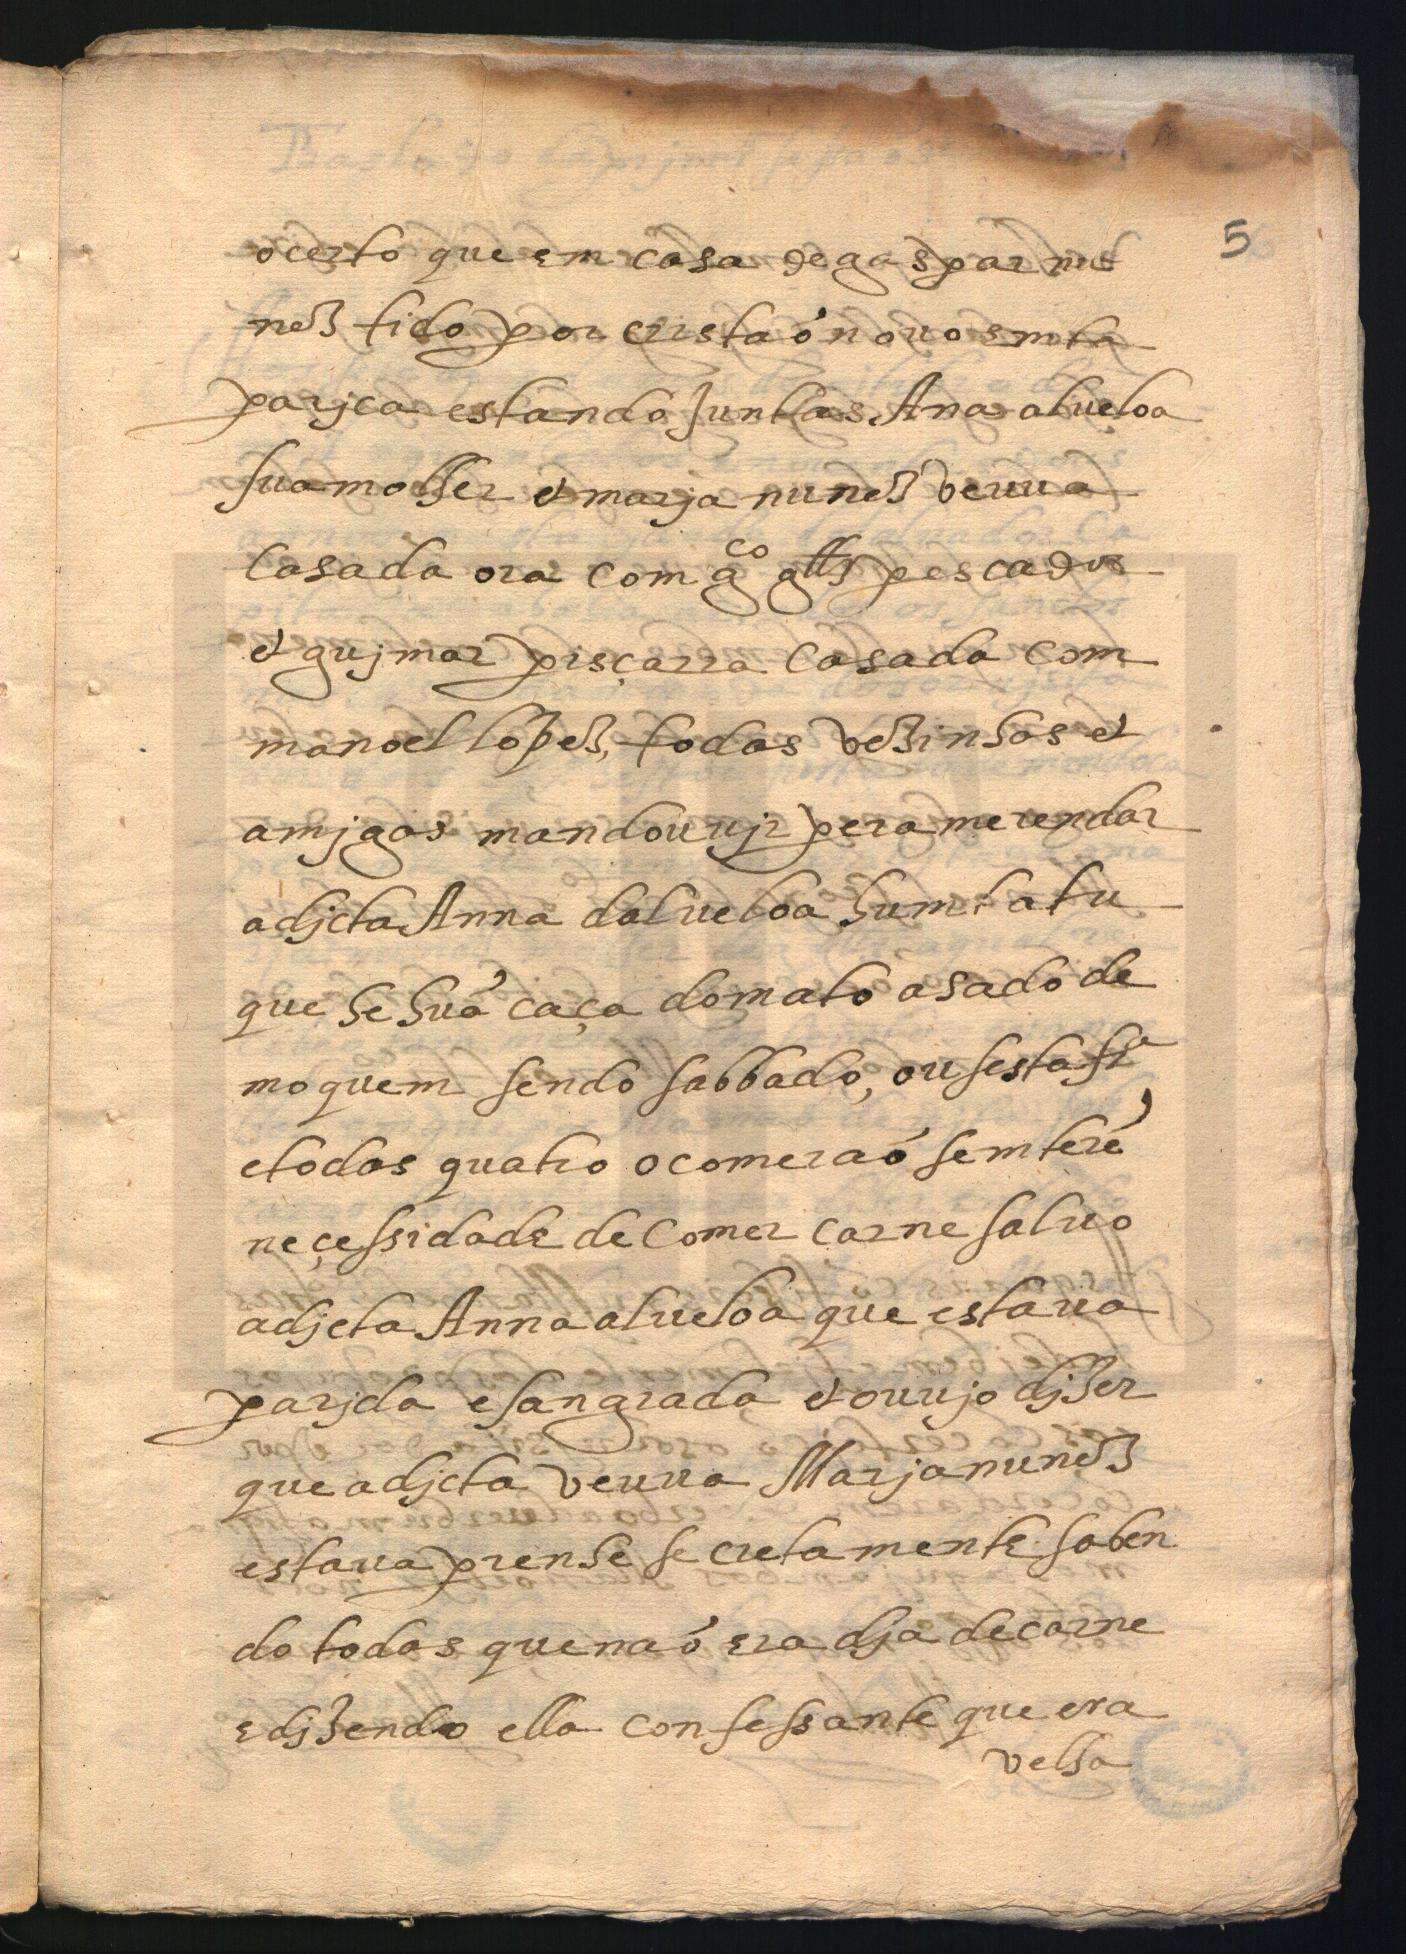 5
o certo que em casa de gaspar nu
nes tido por cristaõ nouo s mta
parjca estando juntas Ana alueloa
sua molher et marja nunes veuua
casada ora com gco glz pescador
et gujmar pisçarra casada com
manoel lopes, todas vezinhas et
amjgas mandou vjr pera merendar
a djcta Anna dalueloa hum tatu
que he huã caça do mato asado de
moquem sendo sabbado, ou sesta fra
e todas quatro o comeraõ sem terẽ
neçessidade de comer carne saluo
a djcta Anna alueloa que estaua
parjda e sangrada et ouujo djzer
que a djcta veuua Marja nunes
estaua prenhe secretamente saben
do todas que naõ era dja de carne
e djzendo ella confessante que era
velha